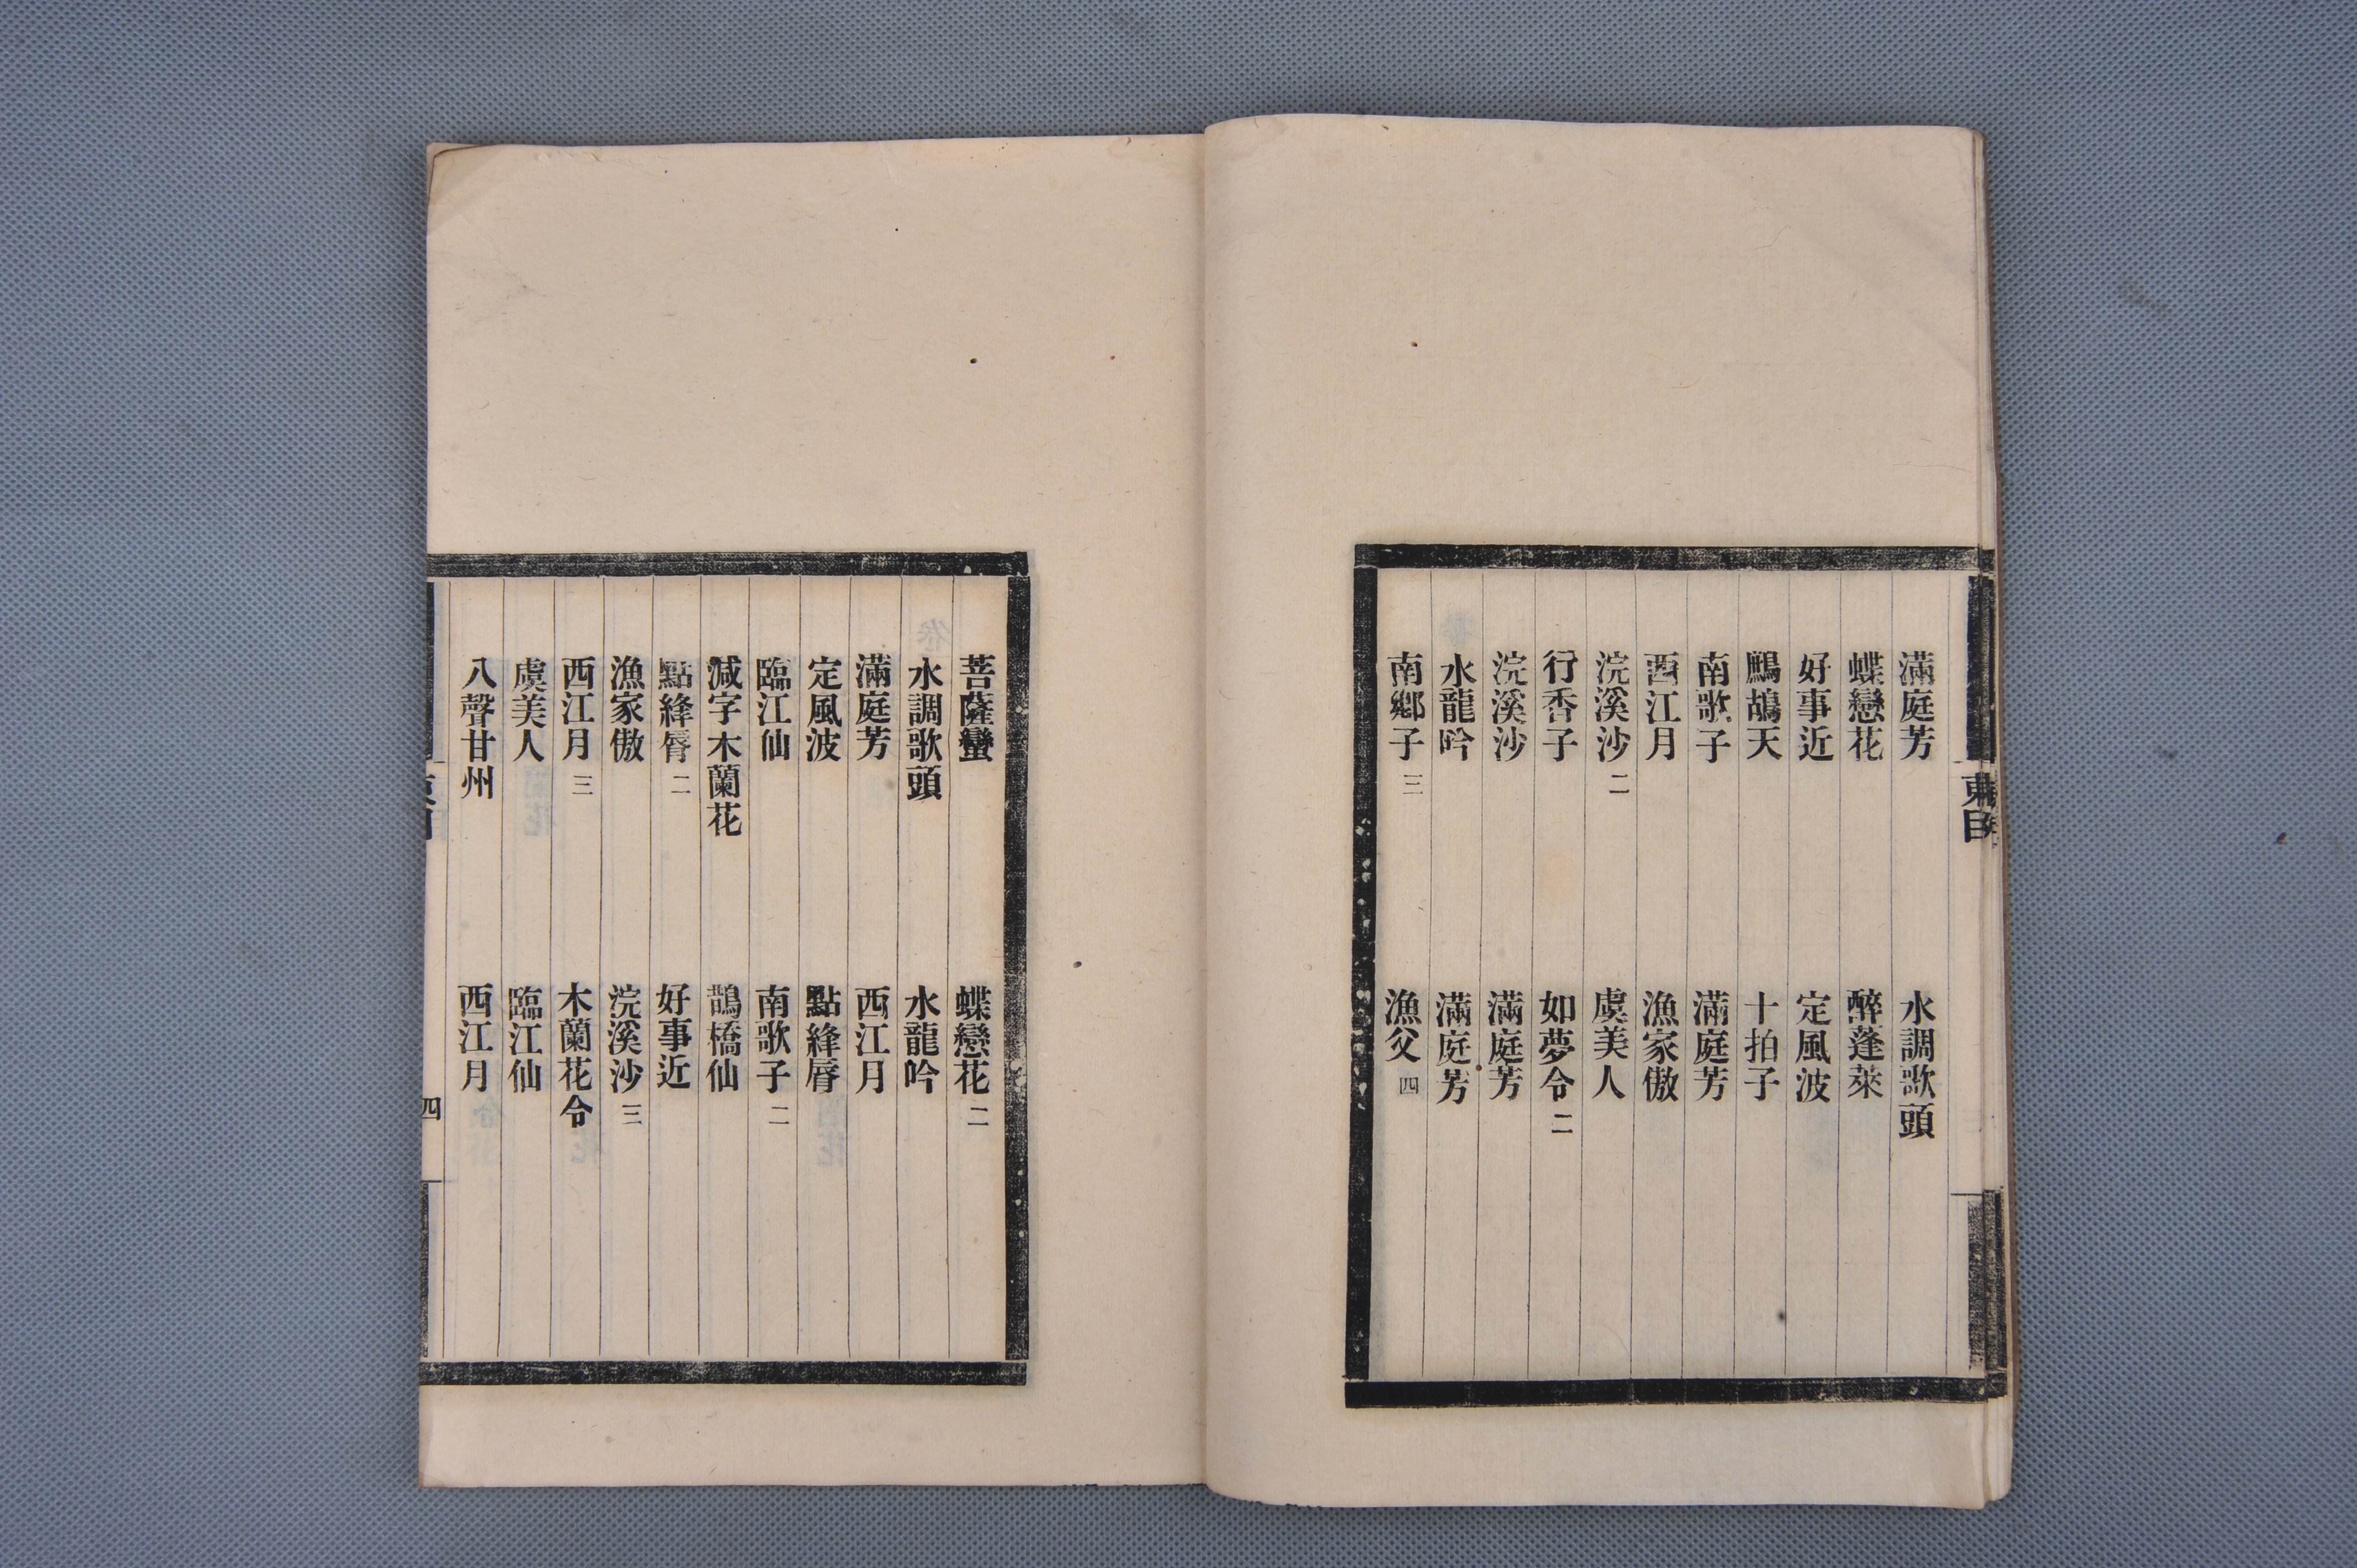 滿庭芳 水調歌頭
蝶戀花 醉蓬萊
好事近 定風波
鷓鴣天 十拍子
南歌子 滿庭芳
西江月 漁家傲
浣溪沙二 虞美人
行香子 如夢令二
浣溪沙 滿庭芳
水龍吟 滿庭芳
南鄉子三 漁父四
菩薩蠻 蝶戀花二
水調歌頭 水龍吟
滿庭芳 西江月
定風波 點絳脣
臨江仙 南歌子二
減字木蘭花 鵲橋仙
點絳脣二 好事近
漁家傲 浣溪沙三
西江月三 木蘭花令
虞美人 臨江仙
八聲甘州 西江月
四